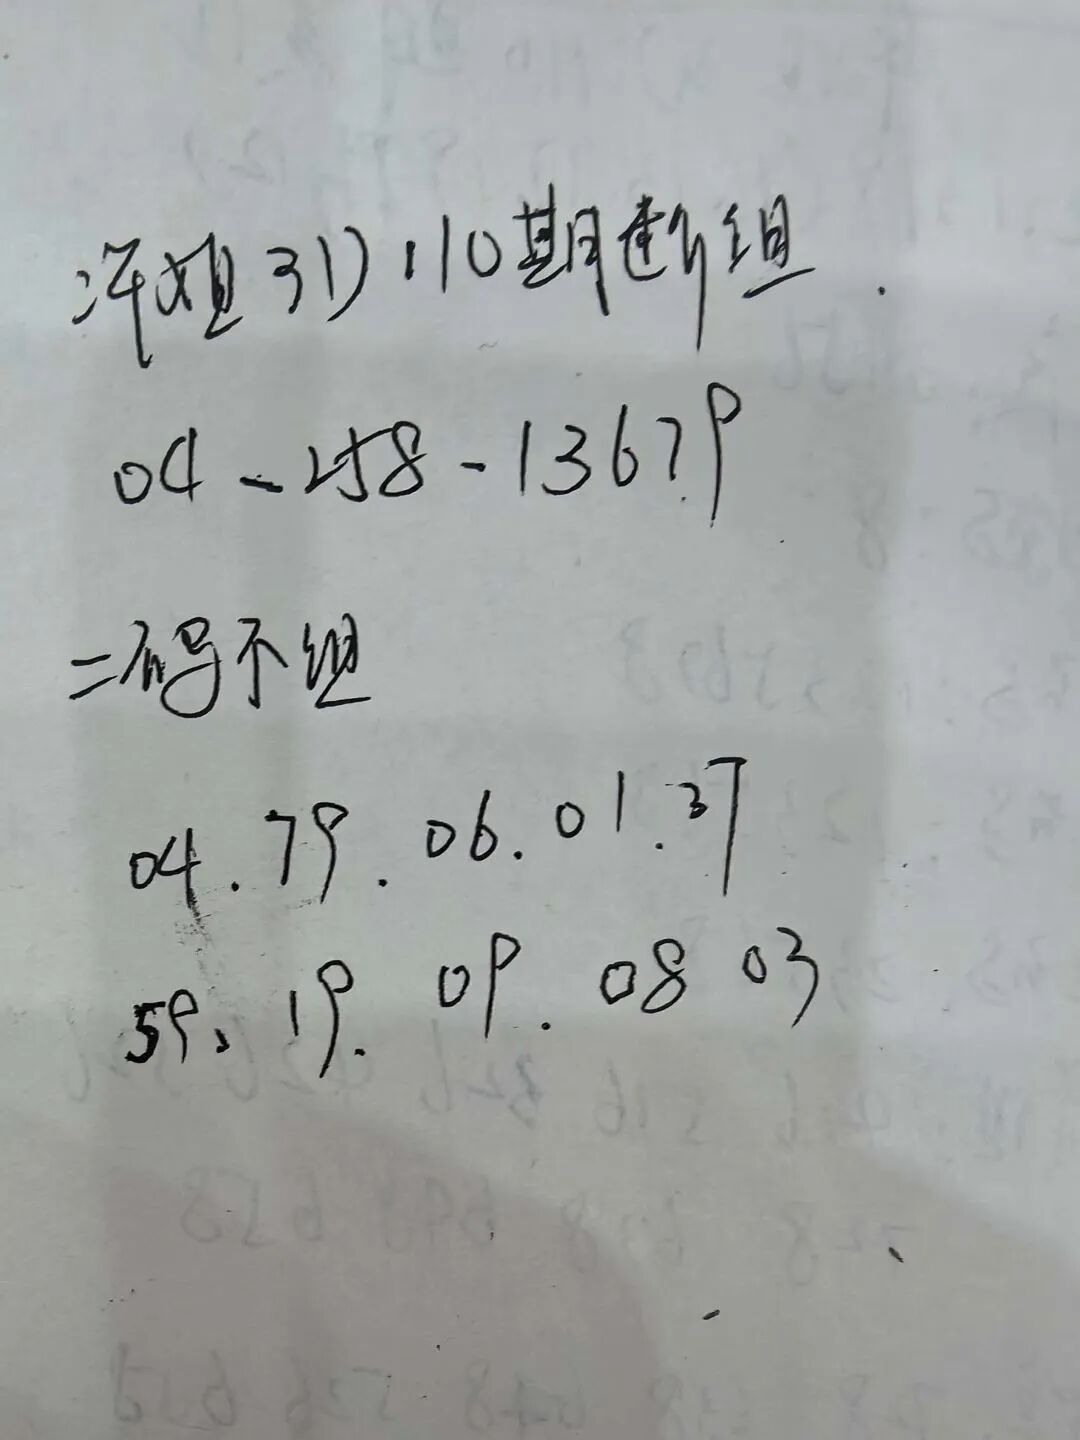 姐3D:110期断组
04-258-13679
二码不组
04.79.06.01.37
59.19.09.08 03